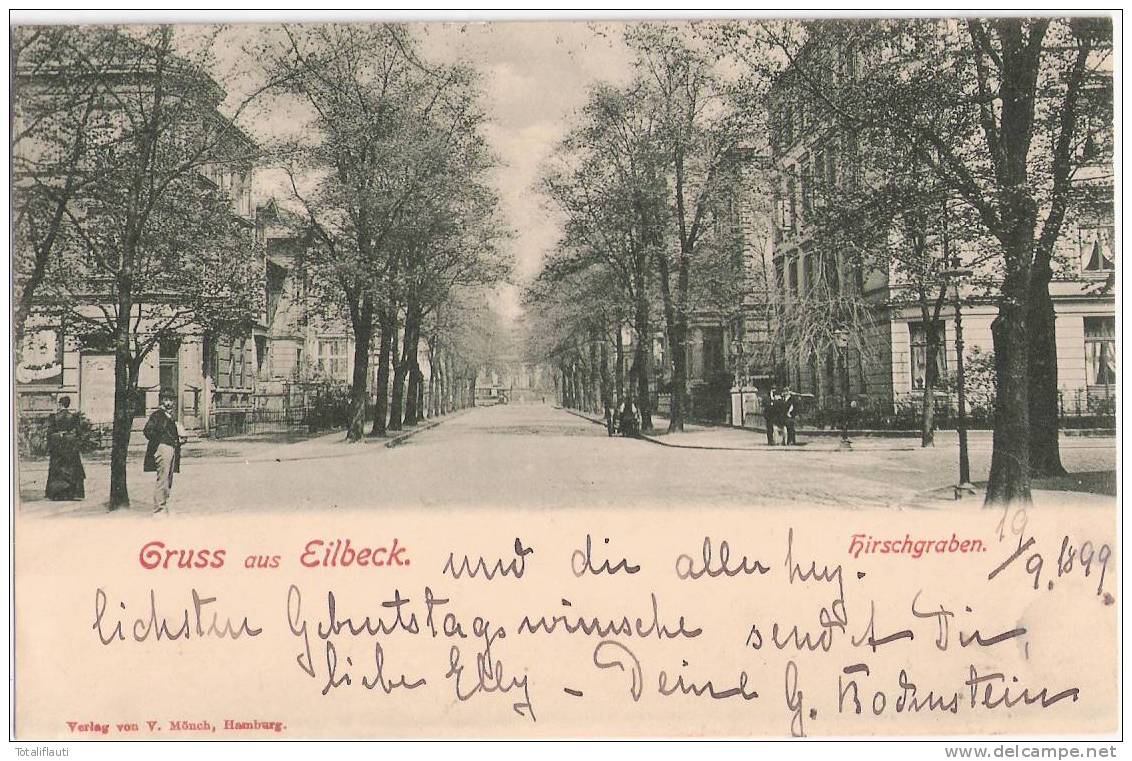 Gruss aus Eilbeck. und dir aller herz- Hirschgraben. 19/9. 1899.
lichsten Geburtstagswünsche sendet Dir,
liebe Elly – Deine G.
Verlag von V. Mönch, Hamburg.
Totaliflauti www.delcampe.net